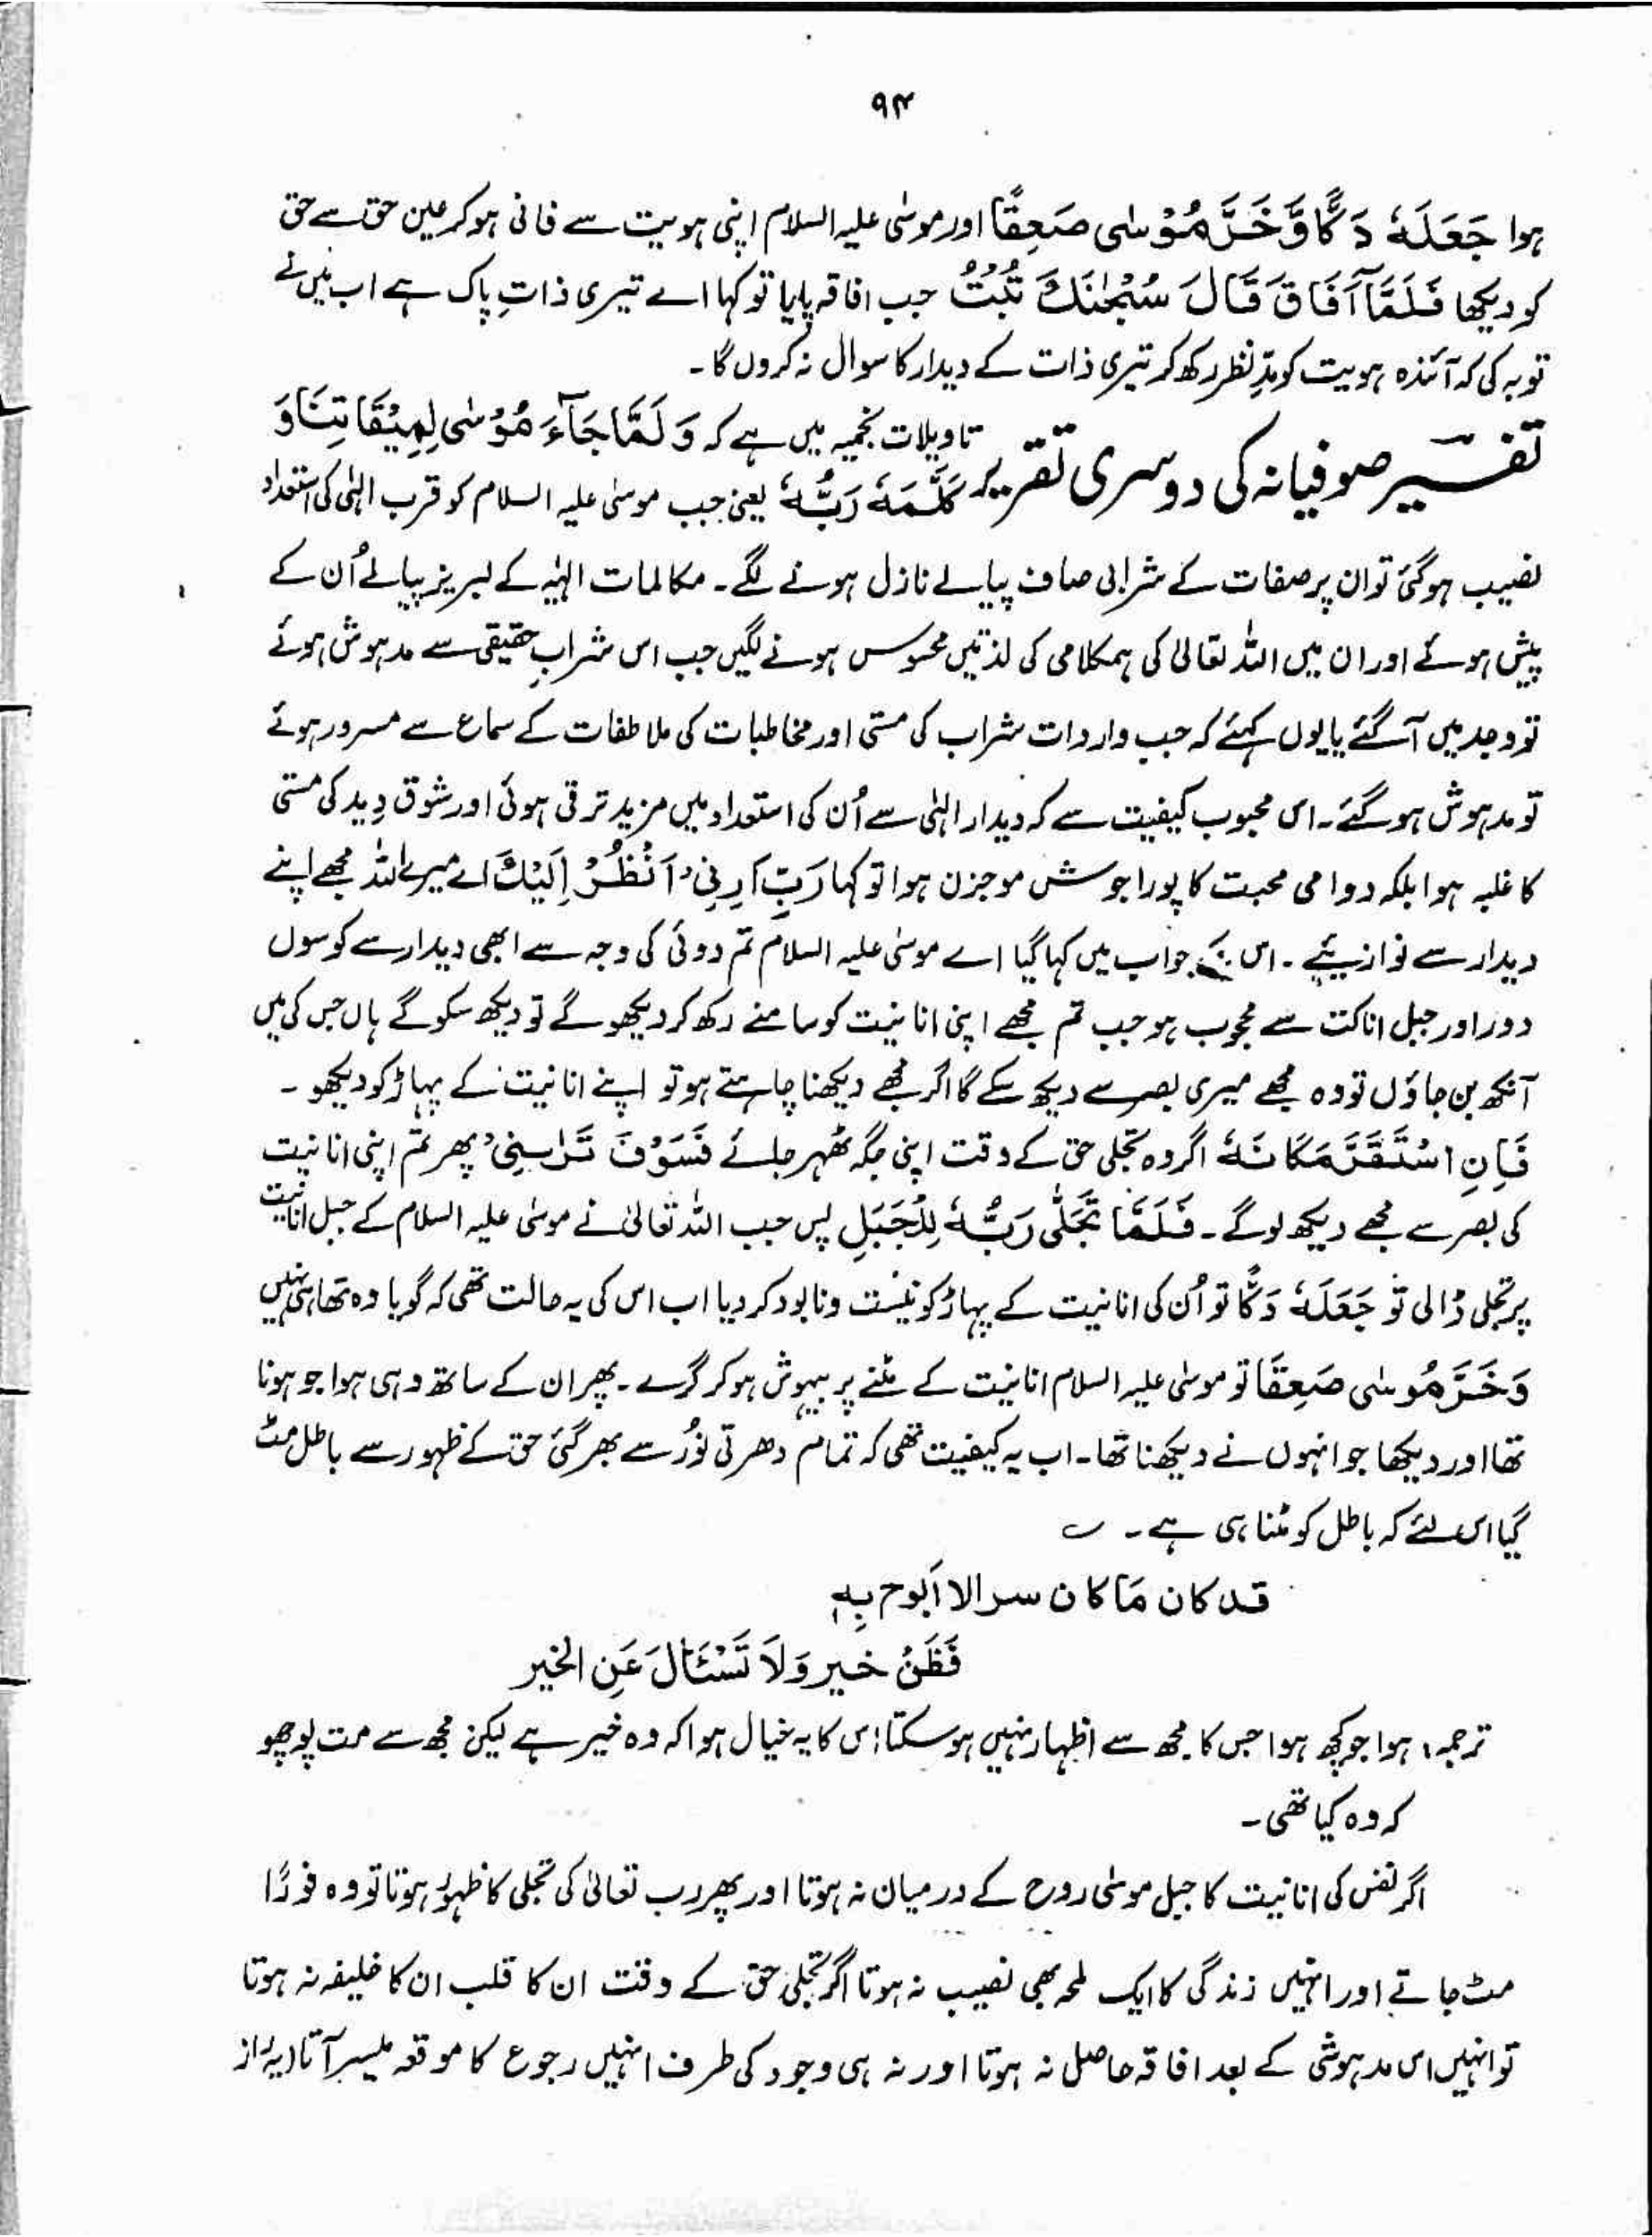 ۹۴
ہوا جَعَلَہٗ دَکًّا وَّخَرَّ مُوْسٰی صَعِقًا اور موسیٰ علیہ السلام اپنی ہویت سے فانی ہو کر عین حق سے حق
کو دیکھا فَلَمَّآ اَفَاقَ قَالَ سُبْحٰنَكَ تُبْتُ جب افاقہ پایا تو کہا اے تیری ذاتِ پاک ہے اب میں نے
توبہ کی کہ آئندہ ہویت کو مدِّ نظر رکھ کر تیری ذات کے دیدار کا سوال نہ کروں گا۔
تفسیر صوفیانہ کی دوسری تقریر تاویلات نجمیہ میں ہے کہ وَلَمَّا جَآءَ مُوْسٰی لِمِیْقَاتِنَا وَ
کَلَّمَہٗ رَبُّہٗ یعنی جب موسیٰ علیہ السلام کو قرب الٰہی کی استعداد
نصیب ہو گئی تو ان پر صفات کے شرابی صاف پیالے نازل ہونے لگے۔ مکالمات الٰہیہ کے لبریز پیالے اُن کے
پیش ہوئے اور ان میں اللہ تعالیٰ کی ہمکلامی کی لذتیں محسوس ہونے لگیں جب اس شرابِ حقیقی سے مدہوش ہوئے
تو وجد میں آ گئے یا یوں کہئے کہ جب واردات شراب کی مستی اور مخاطبات کی ملاطفات کے سماع سے مسرور ہوئے
تو مدہوش ہو گئے۔ اس محبوب کیفیت سے کہ دیدار الٰہی سے اُن کی استعداد میں مزید ترقی ہوئی اور شوق دِید کی مستی
کا غلبہ ہوا بلکہ دوامی محبت کا پورا جوش موجزن ہوا تو کہا رَبِّ اَرِنِیْ اَنْظُرْ اِلَیْكَ اے میرے اللہ مجھے اپنے
دیدار سے نوازیئے۔ اس کے جواب میں کہا گیا اے موسیٰ علیہ السلام تم دوئی کی وجہ سے ابھی دیدار سے کوسوں
دور اور جبل اناکت سے محجوب ہو جب تم مجھے اپنی انانیت کو سامنے رکھ کر دیکھو گے تو دیکھ سکو گے ہاں جس کی میں
آنکھ بن جاؤں تو وہ مجھے میری بصر سے دیکھ سکے گا اگر مجھے دیکھنا چاہتے ہو تو اپنے انانیت کے پہاڑ کو دیکھو۔
فَاِنِ اسْتَقَرَّ مَکَانَہٗ اگر وہ تجلی حق کے وقت اپنی جگہ ٹھہر جائے فَسَوْفَ تَرٰىنِیْ پھر تم اپنی انانیت
کی بصر سے مجھے دیکھ لو گے۔ فَلَمَّا تَجَلّٰی رَبُّہٗ لِلْجَبَلِ پس جب اللہ تعالیٰ نے موسیٰ علیہ السلام کے جبل انانیت
پر تجلی ڈالی تو جَعَلَہٗ دَکًّا تو اُن کی انانیت کے پہاڑ کو نیست و نابود کر دیا اب اس کی یہ حالت تھی کہ گویا وہ تھا ہی نہیں
وَخَرَّ مُوسٰی صَعِقًا تو موسیٰ علیہ السلام انانیت کے مٹنے پر بیہوش ہو کر گرے۔ پھر ان کے ساتھ وہی ہوا جو ہونا
تھا اور دیکھا جو انہوں نے دیکھنا تھا۔ اب یہ کیفیت تھی کہ تمام دھرتی نُور سے بھر گئی حق کے ظہور سے باطل مٹ
گیا اس لئے کہ باطل کو مٹنا ہی ہے۔ ؎
قد کان مَا کان سرالا اَبوح بِہٖ
فَظَنُّ خیر وَلاَ تَسْئَالَ عَنِ الخیر
ترجمہ، ہوا جو کچھ ہوا جس کا مجھ سے اظہار نہیں ہو سکتا؛ اس کا یہ خیال ہوا کہ وہ خیر ہے لیکن مجھ سے مت پوچھو
کہ وہ کیا تھی۔
اگر نفس کی انانیت کا جبل موسٰی روح کے درمیان نہ ہوتا اور پھر رب تعالیٰ کی تجلی کا ظہور ہوتا تو وہ فورًا
مٹ جاتے اور انہیں زندگی کا ایک لمحہ بھی نصیب نہ ہوتا اگر تجلی حق کے وقت ان کا قلب ان کا خلیفہ نہ ہوتا
تو انہیں اس مدہوشی کے بعد افاقہ حاصل نہ ہوتا اور نہ ہی وجود کی طرف انہیں رجوع کا موقعہ میسر آتا (یہ راز